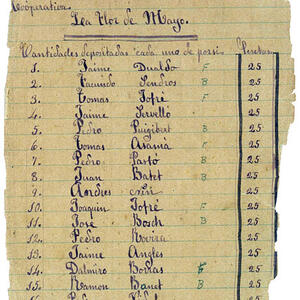 Cooperativa
La Flor de Mayo.
Cantidades depositadas cada uno de por si Pesetas
1. Jaime Dualdo F 25
2. Facundo Sendros B 25
3. Tomas Jofré F 25
4. Jaime Servelló 25
5. Pedro Puigibert B 25
6. Tomas F 25
7. Pedro Pastó B 25
8. Juan Batet B 25
9. Andres 25
10. Joaquin Jofré F 25
11. José Bosch B 25
12. Pedro Rovira 25
13. Jaime Angles 25
14. Dalmiro Borras 25
15. Ramon Banet B 25